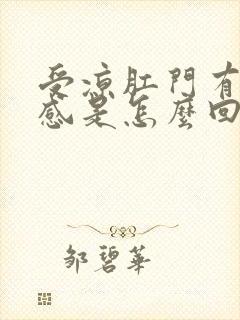 受凉肛門有
感是怎麼回
鄒碧華